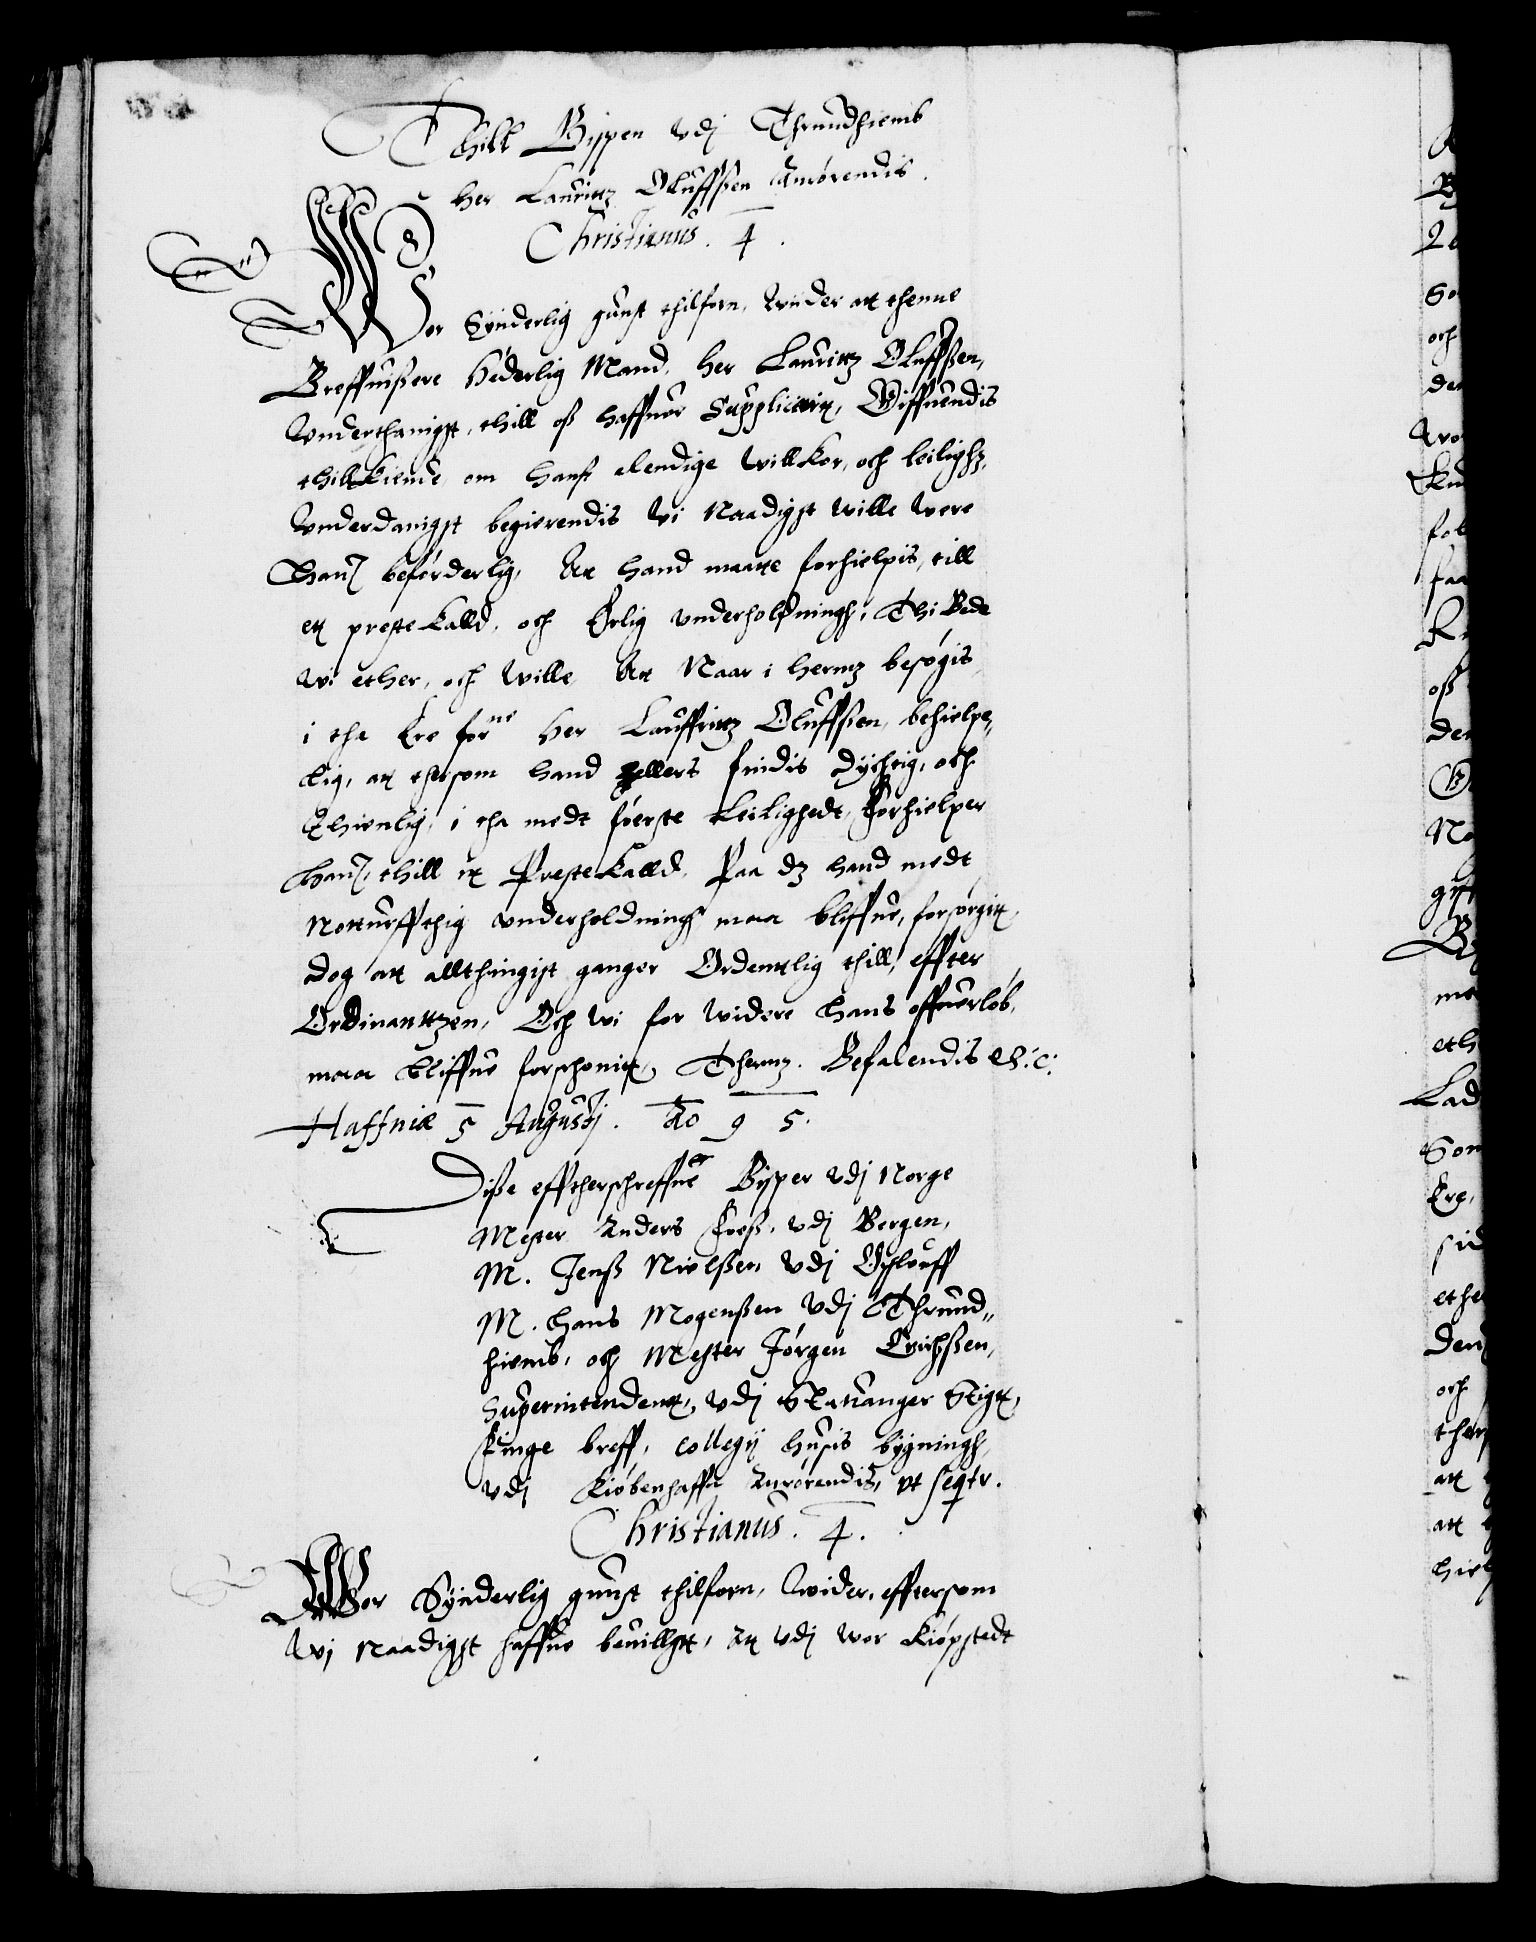 Thill Bispen vdj Thrundhiemb
her Lauritz Oluffßen Anrørendis.
Christianus. 4.
Wor Synderlig gunst thilforn, Wiider att thenne
Breffuißere Hederlig Mand. her Lauritz Oluffßen,
Vnderthanigst, thill oß haffuer Supplicerit, Giffuendis
thillkiende om hanß elendige willkor, och leilighz,
Vnderdanigst begierendis Wi Naadigst wille were
Hanß befórderlig, At hand maatte forhielpis, till
ett preste kalld, och Erlig vnderholdningh, Thi Bede
wi ether, och wille At Naar i hermz besøgis
i tha Ere forne her Lauffritz Oluffßen, behielpe,,
lig, att thersom hand ellers findis dychtig, och
Thienlig, i tha medt føerste Leilighedt, Forhielper
Hanß, thill it Preste kalld, Paa dz hand medt
Notturffthig vnderholdningh maa bliffue, forsørgit,
dog att allthingist ganger Ordentlig thill, effter
Ordinanttzen, Och wi for widere hans offuerløb,
maa bliffue forschonit, Thermz. Befalendis etc:
Haffniæ 5 Augustj. Ao 9 5.
Diße efftherschreffne Bisper vdj Norge
Mester Anders Foß, vdj Bergen,
M. Jenß Nielßen vdj Oslouff
M. Hans Mogenßen vdj Thrund,,
hiemb, och Mester Jørgen Erichßen,
Superintendent, vdj Stauanger Stigt,
Finge breff, collegij husis bygningh,
vdj Kiøbenhaffn Anrørendis, vt seqtr.
Christianus. 4.
Wor Synderlig gunst thilforn, Wider, efftersom
Wj Naadigst haffue beuillgt, At vdj wor Kiøpstedt